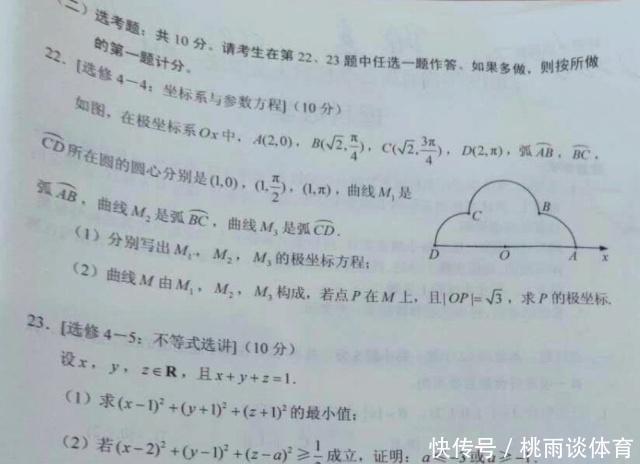 (二)选考题：共10分。请考生在第22、23题中任选一题作答。如果多做，则按所做
的第一题计分。
22．[选修4－4：坐标系与参数方程]（10分）
如图，在极坐标系Ox中，A(2,0)，B(√2,π/4)，C(√2,3π/4)，D(2,π)，弧AB，BC，
CD所在圆的圆心分别是(1,0)，(1,π/2)，(1,π)，曲线M₁是
弧AB，曲线M₂是弧BC，曲线M₃是弧CD．
（1）分别写出M₁，M₂，M₃的极坐标方程；
（2）曲线M由M₁，M₂，M₃构成，若点P在M上，且|OP|=√3，求P的极坐标.
C
B
D
O
A
x
23．[选修4－5：不等式选讲]（10分）
设x，y，z∈R，且x+y+z=1．
（1）求(x-1)²+(y+1)²+(z+1)²的最小值；
（2）若(x-2)²+(y-1)²+(z-a)²≥1成立，证明：a≤-3或a≥-1
快传号／桃雨谈体育